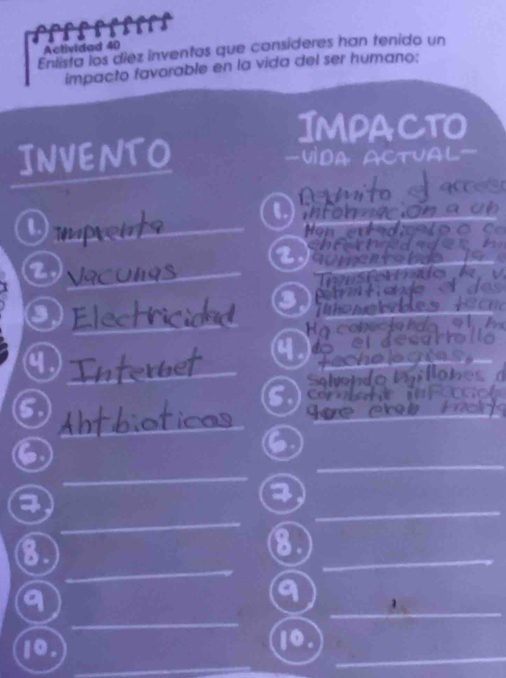 Actividad 40
Enlista los diez inventos que consideres han tenido un
impacto favorable en la vida del ser humano:
INVENTO
IMPACTO
-VIDA ACTUAL-
1. imprenta
2. Vacunas
3. Electricidad
4. Internet
5. Antibioticos
6.
7.
8.
9
10.
1. el acceso
información a un
2. Han erradicado o co
aumentando la e
3. Transformado la v
el des
innumerables tecno
4. Ha conectando al m
do el desarrollo
tecnologías,
5. Salvando millones d
combatir infeccion
que eran
6.
7.
8.
9
10.